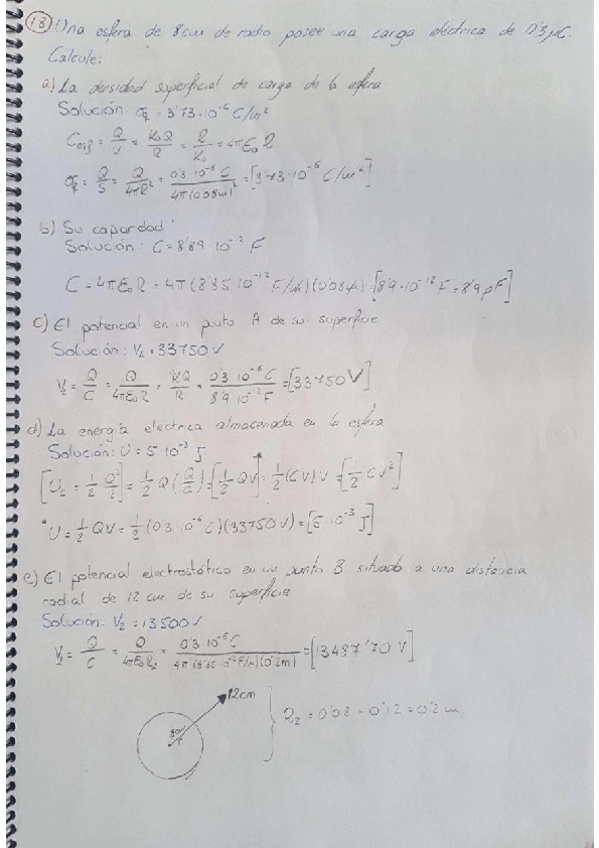 18) Una esfera de 8cm de radio posee una carga eléctrica de 0'3 μC.
Calcule:
a) La densidad superficial de carga de la esfera
Solución: σq = 3'73·10^-6 C/m²
Cesf = Q/V = K₀Q/R = R/K₀ = 4πε₀R
σq = Q/S = Q/4πR² = 0'3·10^-6 C/4π(0'08m)² = [3'73·10^-6 C/m²]
b) Su capacidad
Solución: C = 8'89·10^-12 F
C = 4πε₀R = 4π(8'85·10^-12 F/m)(0'08m) = [8'9·10^-12 F = 8'9 pF]
c) El potencial en un punto A de su superficie
Solución: V₂ = 33750V
V₂ = Q/C = Q/4πε₀R = KQ/R = 0'3·10^-6 C/8'9·10^-12 F = [33750V]
d) La energía eléctrica almacenada en la esfera
Solución: U = 5·10^-3 J
[Uc = 1/2 Q²/C] = 1/2 Q(Q/C) = [1/2 QV]* = 1/2 (CV)V = [1/2 CV²]
*U = 1/2 QV = 1/2 (0'3·10^-6 C)(33750V) = [5·10^-3 J]
e) El potencial electrostático en un punto B situado a una distancia
radial de 12 cm de su superficie
Solución: V₂ = 13500V
V₂ = Q/C = Q/4πε₀R₂ = 0'3·10^-6 C/4π(8'85·10^-12 F/m)(0'2m) = [13487'70 V]
12cm
R₂ = 0'08 + 0'12 = 0'2m